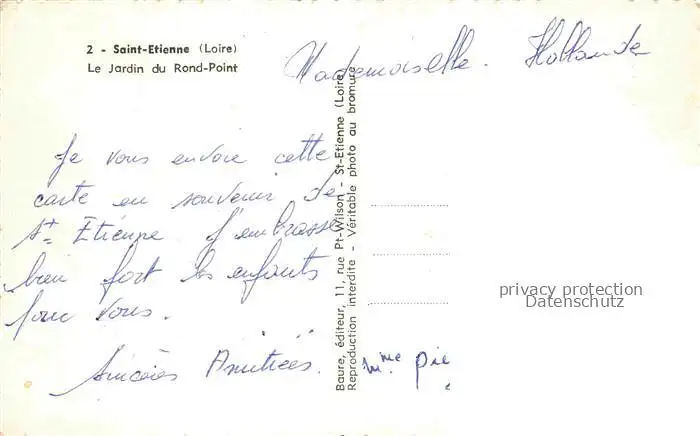 2 - Saint-Etienne (Loire)
Le Jardin du Rond-Point
Mademoiselle. Hollande
Je vous envoie cette
carte en souvenir de
St Etienne j'embrasse
bien fort les enfants
pour vous.
Sincères Amitiées.
Baure, éditeur, 11, rue Pt-Wilson - St-Etienne (Loire)
Reproduction interdite - Véritable photo au bromure
Mme Pic
privacy protection
Datenschutz